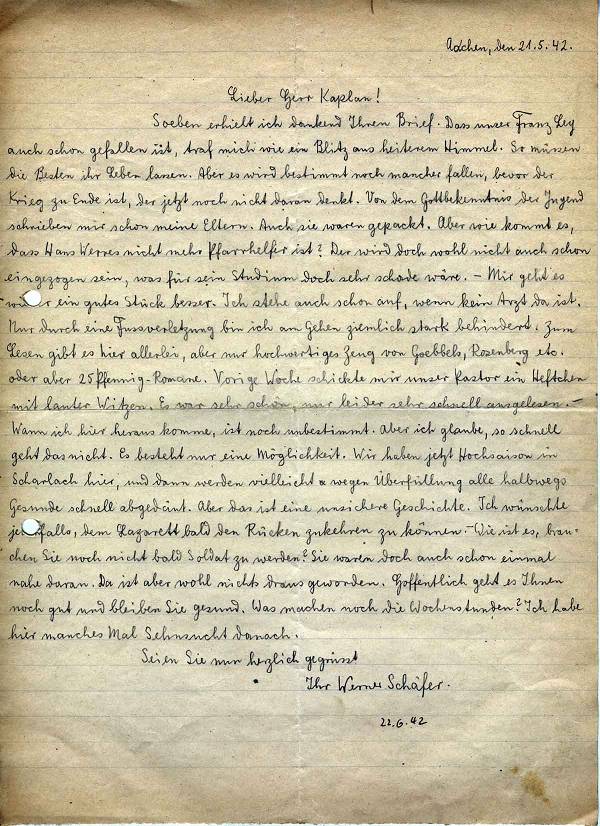 Aachen, den 21.5.42.
Lieber Herr Kaplan!
Soeben erhielt ich dankend Ihren Brief. Dass unser Franz Ley
auch schon gefallen ist, traf mich wie ein Blitz aus heiterem Himmel. So müssen
die Besten ihr Leben lassen. Aber es wird bestimmt noch mancher fallen, bevor der
Krieg zu Ende ist, der jetzt noch nicht daran denkt. Von dem Gottbekenntnis der Jugend
schrieben mir schon meine Eltern. Auch sie waren gepackt. Aber wie kommt es,
dass Hans Werres nicht mehr Pfarrhelfer ist? Der wird doch wohl nicht auch schon
eingezogen sein, was für sein Studium doch sehr schade wäre. – Mir geht es
wieder ein gutes Stück besser. Ich stehe auch schon auf, wenn kein Arzt da ist.
Nur durch eine Fussverletzung bin ich am Gehen ziemlich stark behindert. Zum
Lesen gibt es hier allerlei, aber nur hochwertiges Zeug von Goebbels, Rosenberg etc.
oder aber 25 Pfennig-Romane. Vorige Woche schickte mir unser Pastor ein Heftchen
mit lauter Witzen. Es war sehr schön, nur leider sehr schnell ausgelesen. –
Wann ich hier heraus komme, ist noch unbestimmt. Aber ich glaube, so schnell
geht das nicht. Es besteht nur eine Möglichkeit. Wir haben jetzt Hochsaison in
Scharlach hier, und dann werden vielleicht wegen Überfüllung alle halbwegs
Gesunde schnell abgedampft. Aber das ist eine unsichere Geschichte. Ich wünschte
jedenfalls, dem Lazarett bald den Rücken zukehren zu können. – Wie ist es, brau-
chen Sie noch nicht bald Soldat zu werden? Sie waren doch auch schon einmal
nahe daran. Da ist aber wohl nichts draus geworden. Hoffentlich geht es Ihnen
noch gut und bleiben Sie gesund. Was machen noch die Wochenstunden? Ich habe
hier manches Mal Sehnsucht danach.
Seien Sie nun herzlich gegrüsst
Ihr Werner Schäfer.
22.6.42